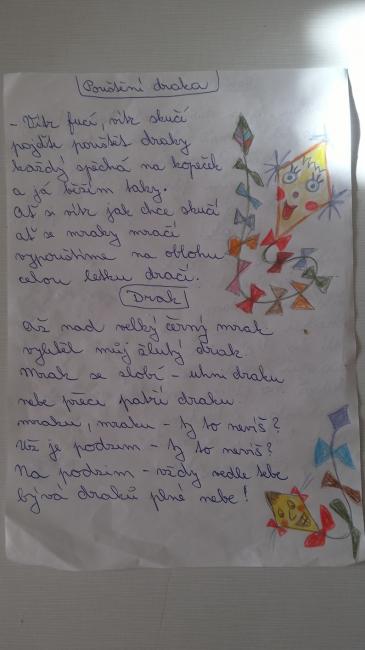 Pouštění draka
- Vítr fučí, vítr skučí
pojďte pouštět draky
každý spěchá na kopeček
a já běžím taky.
Ať si vítr jak chce skučí
ať se mraky mračí
vypouštíme na oblohu
celou letku dračí.
Drak
Až nad velký černý mrak
vylítěl můj žlutý drak.
Mrak se zlobí - uhni draku
nebe přeci patří draku.
mraku, mraku - ty to nevíš?
Už je podzim - ty to nevíš?
Na podzim - vždy vedle tebe
bývá draků plné nebe!